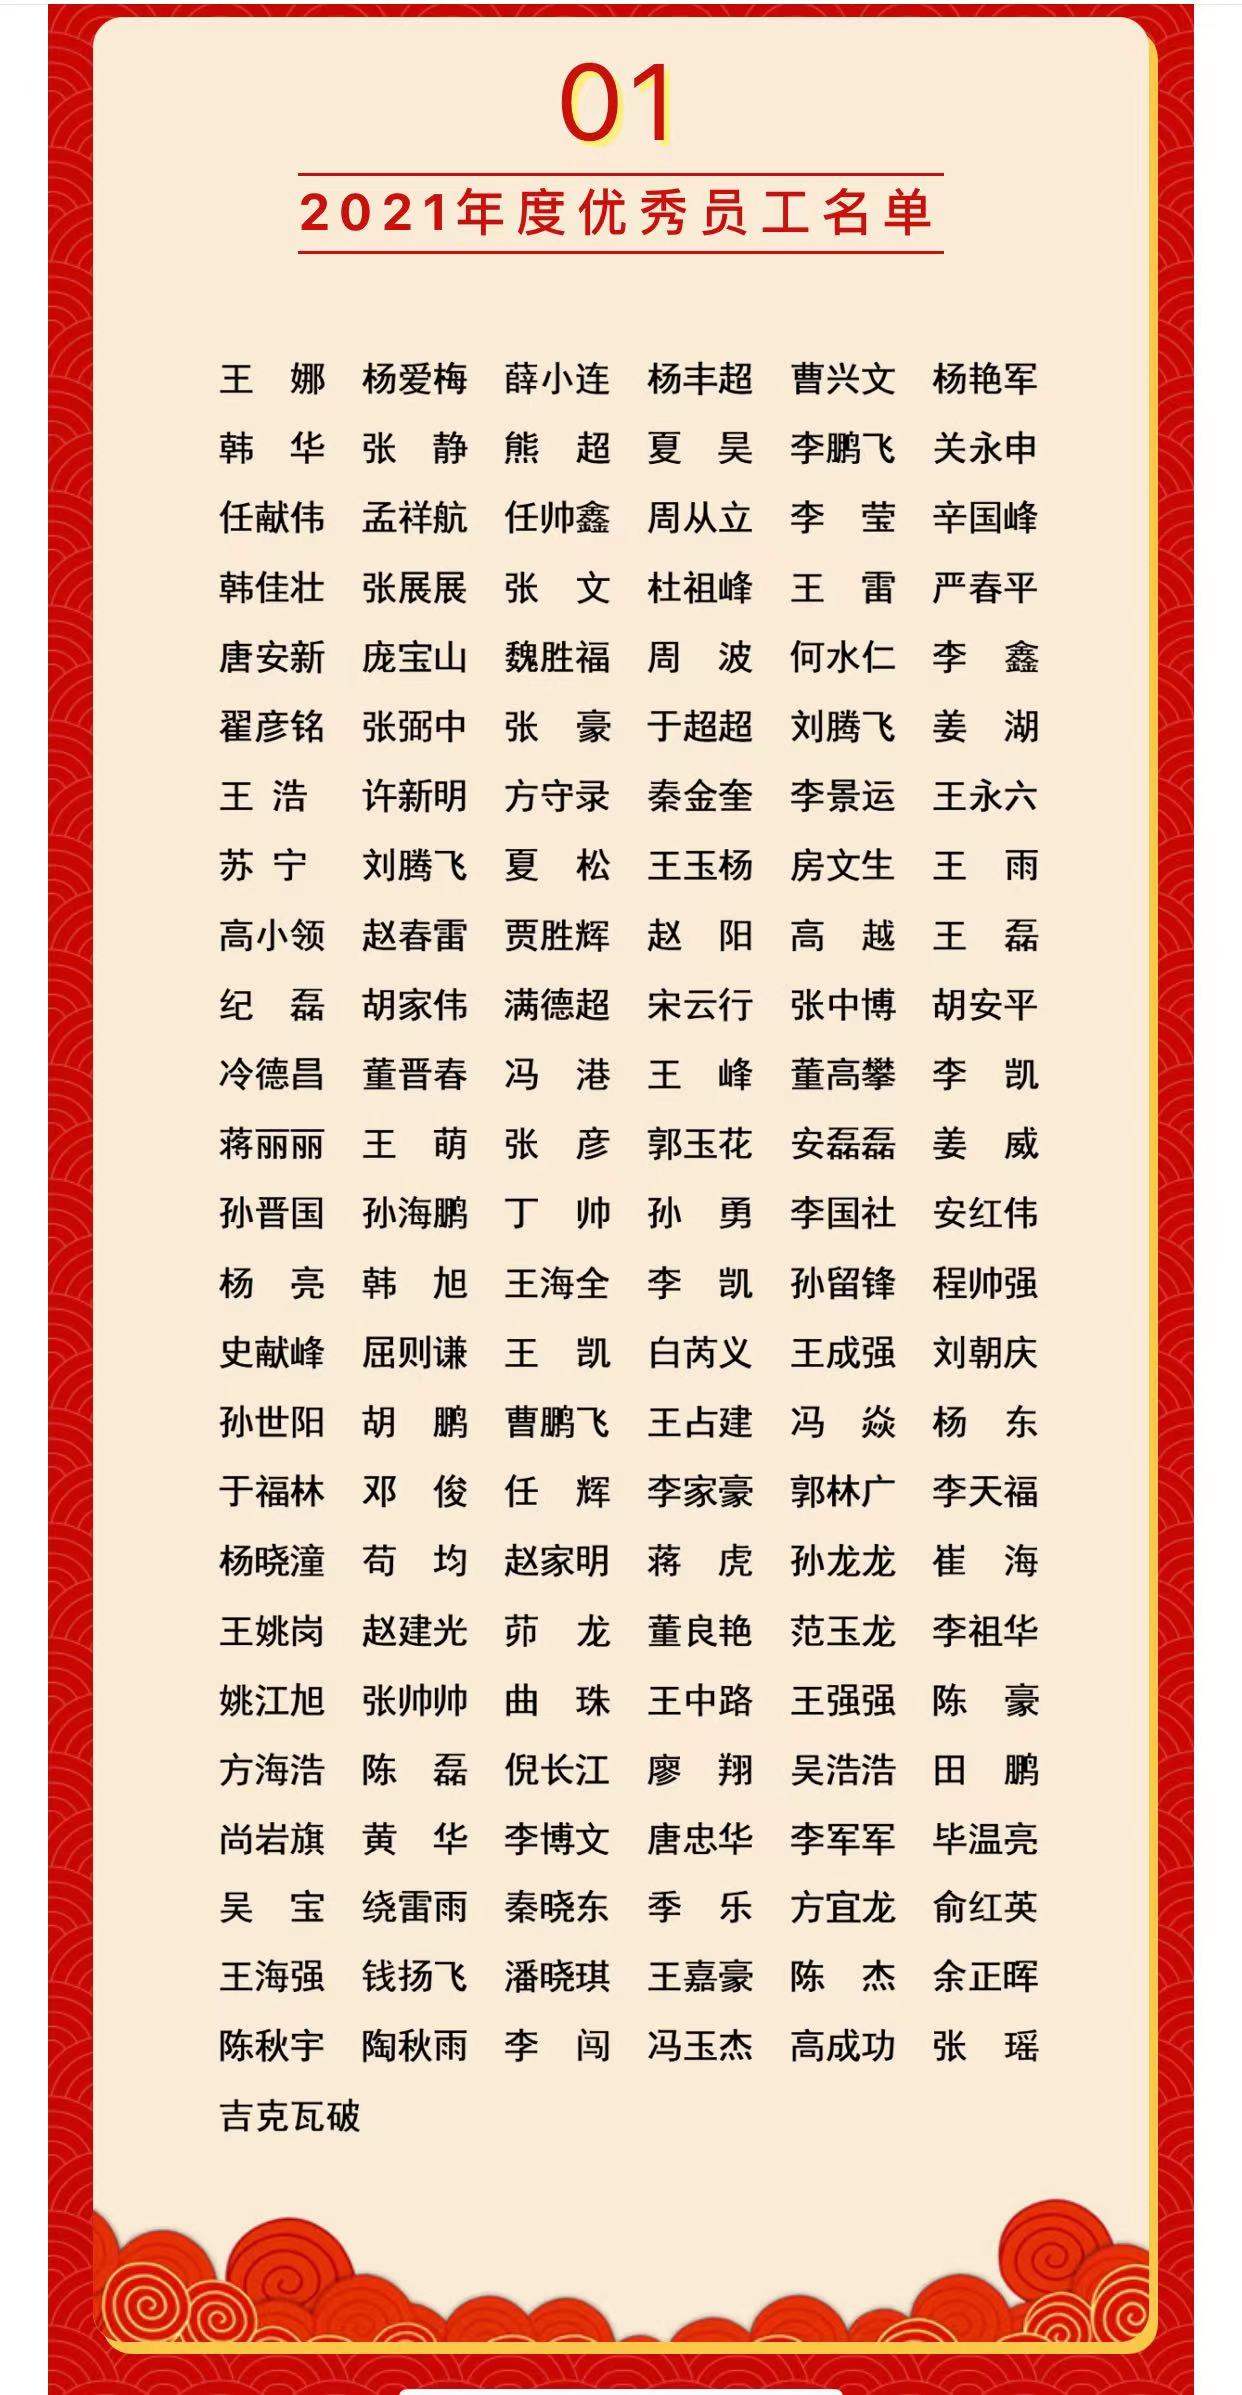 01
2021年度优秀员工名单
王　娜　杨爱梅　薛小连　杨丰超　曹兴文　杨艳军
韩　华　张　静　熊　超　夏　昊　李鹏飞　关永申
任献伟　孟祥航　任帅鑫　周从立　李　莹　辛国峰
韩佳壮　张展展　张　文　杜祖峰　王　雷　严春平
唐安新　庞宝山　魏胜福　周　波　何水仁　李　鑫
翟彦铭　张弼中　张　豪　于超超　刘腾飞　姜　湖
王 浩　许新明　方守录　秦金奎　李景运　王永六
苏 宁　刘腾飞　夏　松　王玉杨　房文生　王　雨
高小领　赵春雷　贾胜辉　赵　阳　高　越　王　磊
纪　磊　胡家伟　满德超　宋云行　张中博　胡安平
冷德昌　董晋春　冯　港　王　峰　董高攀　李　凯
蒋丽丽　王　萌　张　彦　郭玉花　安磊磊　姜　威
孙晋国　孙海鹏　丁　帅　孙　勇　李国社　安红伟
杨　亮　韩　旭　王海全　李　凯　孙留锋　程帅强
史献峰　屈则谦　王　凯　白芮义　王成强　刘朝庆
孙世阳　胡　鹏　曹鹏飞　王占建　冯　焱　杨　东
于福林　邓　俊　任　辉　李家豪　郭林广　李天福
杨晓潼　苟　均　赵家明　蒋　虎　孙龙龙　崔　海
王姚岗　赵建光　茆　龙　董良艳　范玉龙　李祖华
姚江旭　张帅帅　曲　珠　王中路　王强强　陈　豪
方海浩　陈　磊　倪长江　廖　翔　吴浩浩　田　鹏
尚岩旗　黄　华　李博文　唐忠华　李军军　毕温亮
吴　宝　绕雷雨　秦晓东　季　乐　方宜龙　俞红英
王海强　钱扬飞　潘晓琪　王嘉豪　陈　杰　余正晖
陈秋宇　陶秋雨　李　闯　冯玉杰　高成功　张　瑶
吉克瓦破